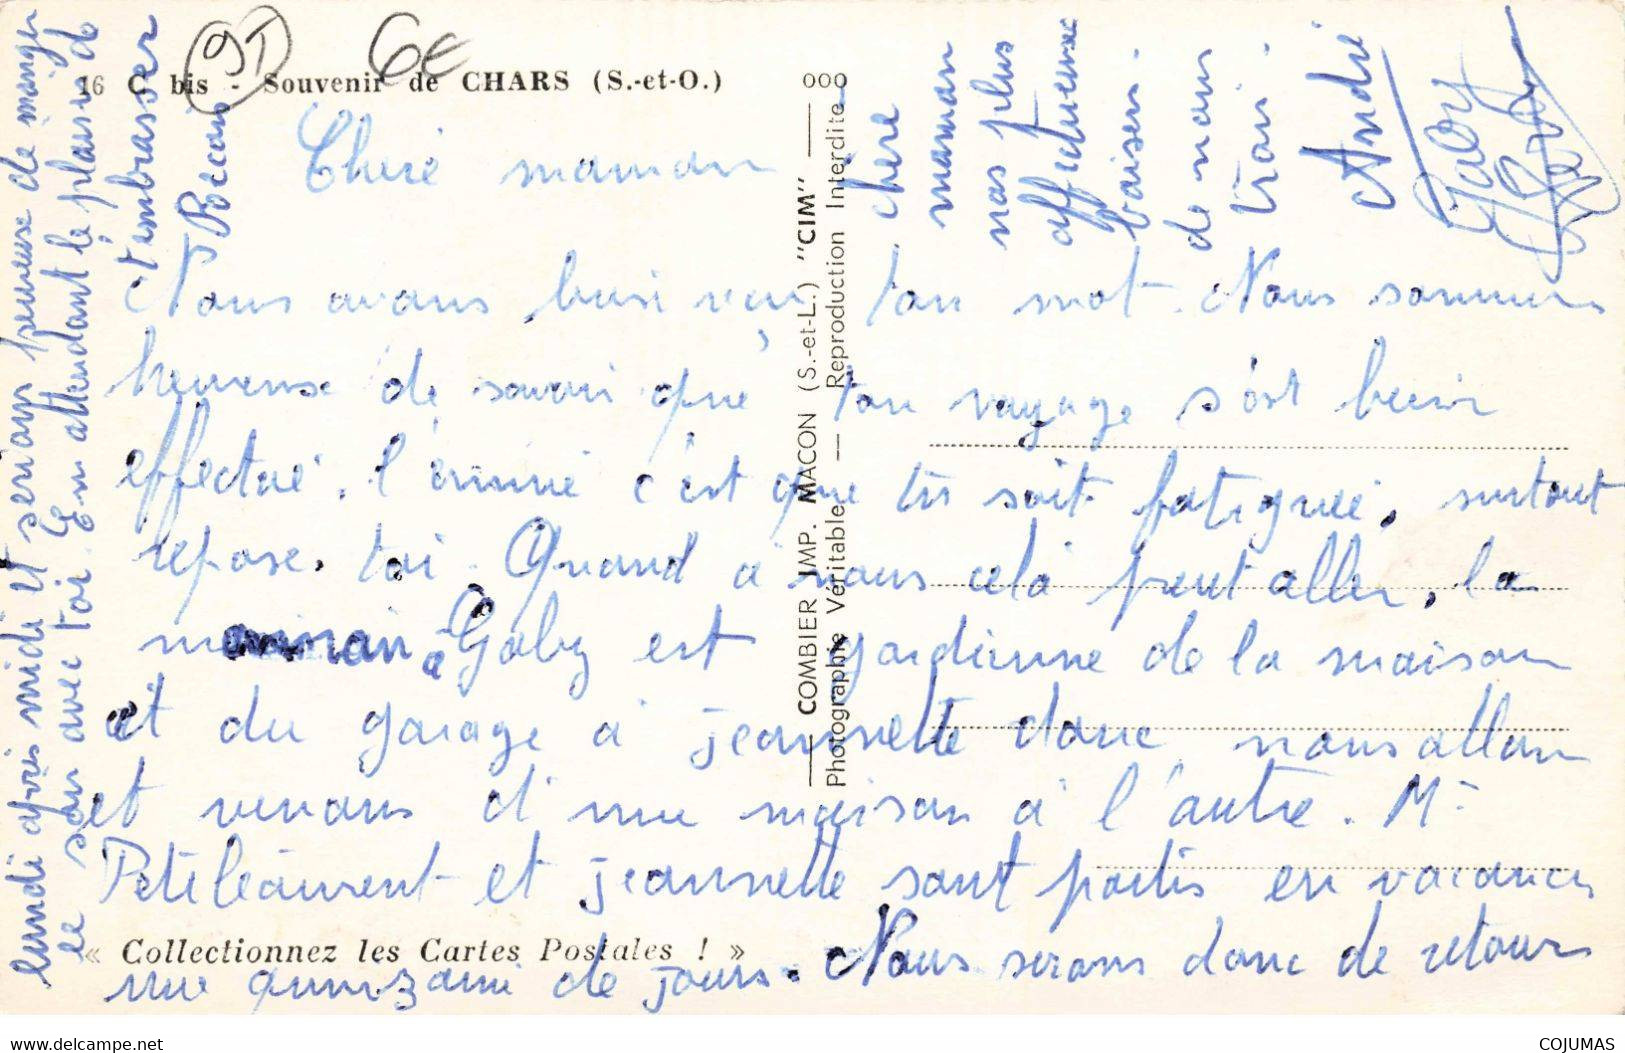 16 C bis - Souvenir de CHARS (S.-et-O.)
6€
Cheré maman
Nous avons bien reçu ton mot. Nous sommes
heureuse de savoir que ton voyage s'est bien
effectué. l'ennuie c'est que tu soit fatiguée, surtout
repose. toi. Quand à nous cela peut aller, la
Gaby est gardienne de la maison
et du garage à jeannette donc nous allon
et venons d'une maison à l'autre. Mr
et jeannette sont partis en vacances
une quinzaine de jours. Nous serons donc de retour
lundi après midi et serions heureuse de manger
ce soir avec toi. En attendant le plaisir de
t'embrasser
Reçois
chere
maman
nos plus
affectueuse
baisers.
de nous
trois.
André
Gaby
« Collectionnez les Cartes Postales ! »
COMBIER IMP. MACON (S.-et-L.) "CIM"
Photographie Véritable — Reproduction Interdite
www.delcampe.net
COJUMAS